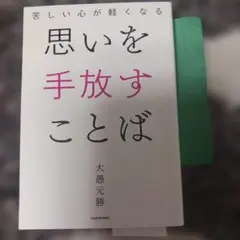 苦しい心が軽くなる
思いを
手放す
ことば
大愚元勝
KADOKAWA